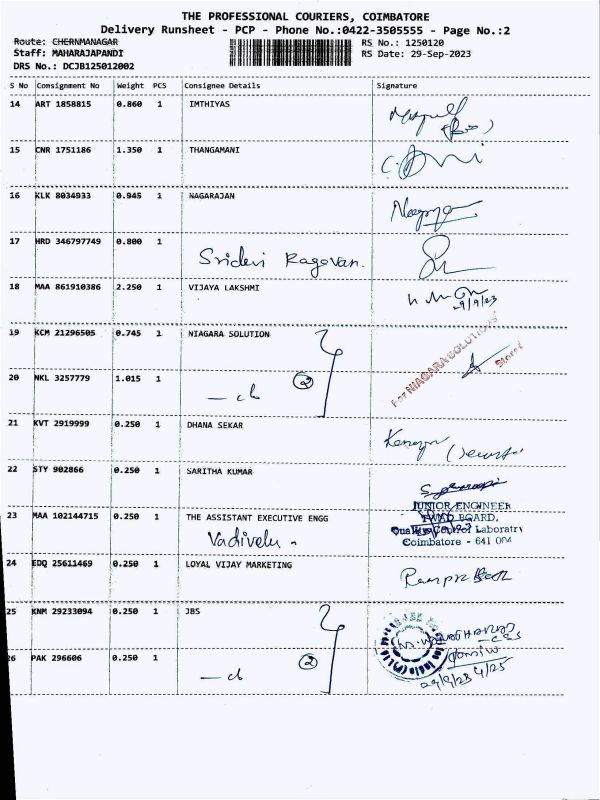 THE PROFESSIONAL COURIERS, COIMBATORE
Delivery Runsheet - PCP - Phone No.:0422-3505555 - Page No.:2
Route: CHERNMANAGAR
RS No.: 1250120
Staff: MAHARAJAPANDI
RS Date: 29-Sep-2023
DRS No.: DCJB125012002
S No Consignment No Weight PCS Consignee Details Signature
14 ART 1858815 0.860 1 IMTHIYAS
15 CNR 1751186 1.350 1 THANGAMANI
16 KLK 8034933 0.945 1 NAGARAJAN
17 HRD 346797749 0.800 1
Sridevi Ragavan.
18 MAA 861910386 2.250 1 VIJAYA LAKSHMI
29/9/23
19 KCM 21296505 0.745 1 NIAGARA SOLUTION
For NIAGARA SOLUTIONS
Stores
20 NKL 3257779 1.015 1
2
21 KVT 2919999 0.250 1 DHANA SEKAR
22 STY 902866 0.250 1 SARITHA KUMAR
JUNIOR ENGINEER
23 MAA 102144715 0.250 1 THE ASSISTANT EXECUTIVE ENGG
TWAD BOARD,
Vadivelu
Control Laboratry
Coimbatore - 641 004
24 EDQ 25611469 0.250 1 LOYAL VIJAY MARKETING
25 KNM 29233094 0.250 1 JBS
26 PAK 296606 0.250 1
2
29/9/23 4/25